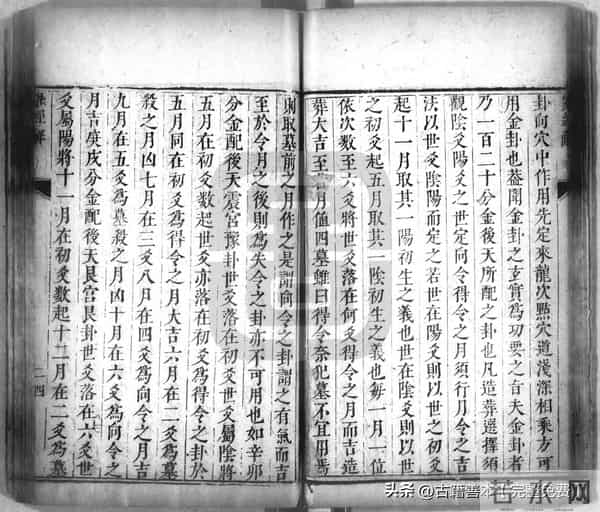 卦向穴中作用先定來龍次點穴道淺深相乘方可
用金卦也蓋開金卦之玄實為功要之音夫金卦者
乃一百二十分金後天所配之卦也凡造葬選擇須
觀陰爻陽爻之世定向令得令之月須行月令之吉
法以世爻陰陽而定之若世在陽爻則以世之初爻
起十一月取其一陽初生之義也世在陰爻則以世
之初爻起五月取其一陰初生之義也每一月一位
依次數至六爻將世爻落在何爻得令之月而吉造
葬大吉至六月值四墓雖曰得令奈犯墓不宜用焉
則取墓前之月作之是謂向令之卦謂之有氣而吉
至於令月之後則為失令之卦亦不可用也如辛卯
分金配後天震宮豫卦世爻落在初爻世爻屬陰將
五月在初爻數起世爻亦落在初爻為得令之卦於
五月同在初爻為得令之月大吉六月在二爻為墓
殺之月凶七月在三爻八月在四爻為向令之月吉
九月在五爻為墓殺之月凶十月在六爻為向令之
月吉癸戌分金配後天艮宮艮卦世爻落在六爻世
爻屬陽將十一月在初爻數起十二月在二爻為墓
一四
頭條 @古籍善本